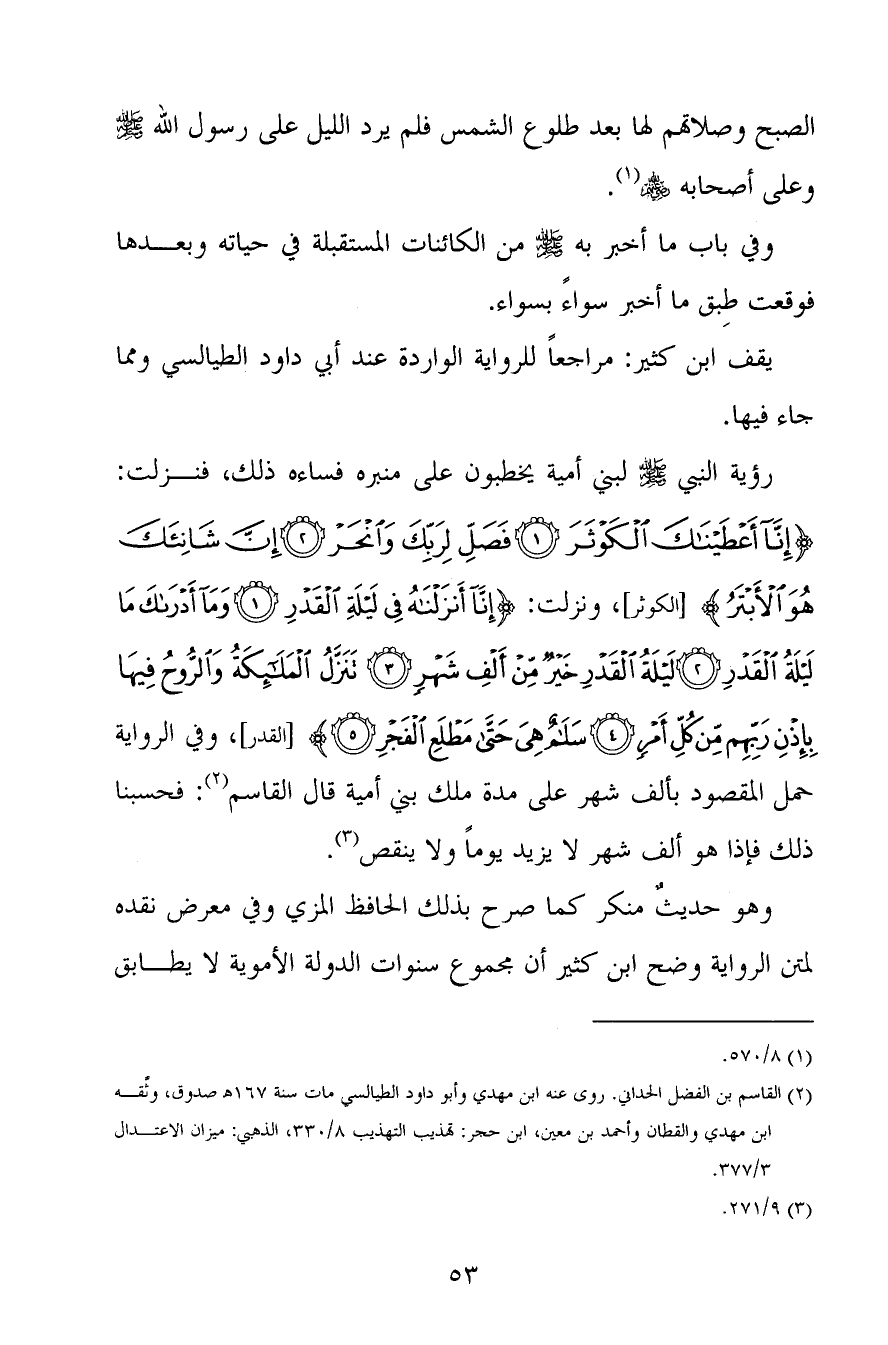 الصبح وصلاتهم لها بعد طلوع الشمس فلم يرد الليل على رسول الله ﷺ
وعلى أصحابه ﷺ(١).
وفي باب ما أخبر به ﷺ من الكائنات المستقبلة في حياته وبعـــدها
فوقعت طِبق ما أخبر سواءً بسواء.
يقف ابن كثير: مراجعاً للرواية الواردة عند أبي داود الطيالسي ومما
جاء فيها.
رؤية النبي ﷺ لبني أمية يخطبون على منبره فساءه ذلك، فنـــزلت:
﴿إِنَّآ أَعْطَيْنَٰكَ ٱلْكَوْثَرَ ١ فَصَلِّ لِرَبِّكَ وَٱنْحَرْ ٢ إِنَّ شَانِئَكَ
هُوَ ٱلْأَبْتَرُ﴾ [الكوثر]، ونزلت: ﴿إِنَّآ أَنزَلْنَٰهُ فِى لَيْلَةِ ٱلْقَدْرِ ١ وَمَآ أَدْرَىٰكَ مَا
لَيْلَةُ ٱلْقَدْرِ ٢ لَيْلَةُ ٱلْقَدْرِ خَيْرٌ مِّنْ أَلْفِ شَهْرٍ ٣ تَنَزَّلُ ٱلْمَلَٰٓئِكَةُ وَٱلرُّوحُ فِيهَا
بِإِذْنِ رَبِّهِم مِّن كُلِّ أَمْرٍ ٤ سَلَٰمٌ هِىَ حَتَّىٰ مَطْلَعِ ٱلْفَجْرِ ٥﴾ [القدر]، وفي الرواية
حمل المقصود بألف شهر على مدة ملك بني أمية قال القاسم(٢): فحسبنا
ذلك فإذا هو ألف شهر لا يزيد يوماً ولا ينقص(٣).
وهو حديثٌ منكر كما صرح بذلك الحافظ المزي وفي معرض نقده
لمتن الرواية وضح ابن كثير أن مجموع سنوات الدولة الأموية لا يطـــابق
(١) ٥٧٠/٨.
(٢) القاسم بن الفضل الحداني. روى عنه ابن مهدي وأبو داود الطيالسي مات سنة ١٦٧ه صدوق، وثَّقـــه
ابن مهدي والقطان وأحمد بن معين، ابن حجر: تهذيب التهذيب ٣٣٠/٨، الذهبي: ميزان الاعتـــدال
٣٧٧/٣.
(٣) ٢٧١/٩.
٥٣